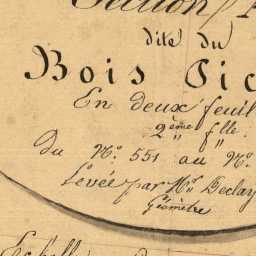 Section
dite du
Bois Pic
En deux feuil
2ème flle
Du No. 551 au No.
Levée par Mr Declay
Géomètre
Echelle